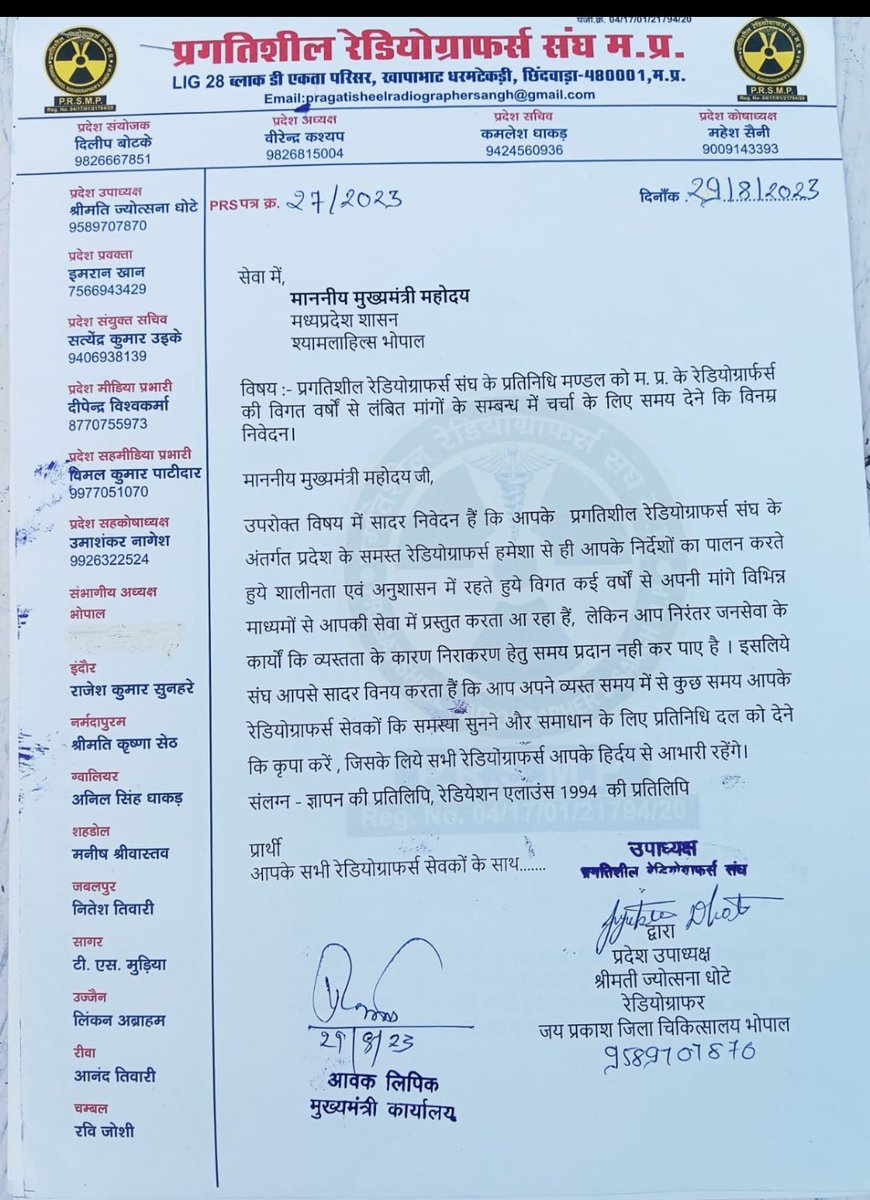 पंजी.क्र. 04/17/01/21794/20
प्रगतिशील रेडियोग्राफर्स संघ म.प्र.
LIG 28 ब्लाक डी एकता परिसर, खापाभाट धरमटेकड़ी, छिंदवाड़ा-480001,म.प्र.
Email:pragatisheelradiographersangh@gmail.com
P.R.S.M.P.
Reg. No. 04/17/01/21794/20
P.R.S.M.P.
प्रदेश संयोजक
दिलीप बोटके
9826667851
प्रदेश अध्यक्ष
वीरेन्द्र कश्यप
9826815004
प्रदेश सचिव
कमलेश धाकड़
9424560936
प्रदेश कोषाध्यक्ष
महेश सैनी
9009143393
प्रदेश उपाध्यक्ष
श्रीमति ज्योत्सना धोटे
9589707870
प्रदेश प्रवक्ता
इमरान खान
7566943429
प्रदेश संयुक्त सचिव
सत्येंद्र कुमार उइके
9406938139
प्रदेश मीडिया प्रभारी
दीपेन्द्र विश्वकर्मा
8770755973
प्रदेश सहमीडिया प्रभारी
विमल कुमार पाटीदार
9977051070
प्रदेश सहकोषाध्यक्ष
उमाशंकर नागेश
9926322524
संभागीय अध्यक्ष
भोपाल
इंदौर
राजेश कुमार सुनहरे
नर्मदापुरम
श्रीमति कृष्णा सेठ
ग्वालियर
अनिल सिंह धाकड़
शहडोल
मनीष श्रीवास्तव
जबलपुर
नितेश तिवारी
सागर
टी. एस. मुड़िया
उज्जैन
लिंकन अब्राहम
रीवा
आनंद तिवारी
चम्बल
रवि जोशी
PRSपत्र क्र. 27/2023
दिनाँक 29/8/2023
सेवा में,
माननीय मुख्यमंत्री महोदय
मध्यप्रदेश शासन
श्यामलाहिल्स भोपाल
विषय :- प्रगतिशील रेडियोग्राफर्स संघ के प्रतिनिधि मण्डल को म. प्र. के रेडियोग्रार्फर्स
की विगत वर्षों से लंबित मांगों के सम्बन्ध में चर्चा के लिए समय देने कि विनम्र
निवेदन।
माननीय मुख्यमंत्री महोदय जी,
उपरोक्त विषय में सादर निवेदन हैं कि आपके प्रगतिशील रेडियोग्राफर्स संघ के
अंतर्गत प्रदेश के समस्त रेडियोग्राफर्स हमेशा से ही आपके निर्देशों का पालन करते
हुये शालीनता एवं अनुशासन में रहते हुये विगत कई वर्षों से अपनी मांगे विभिन्न
माध्यमों से आपकी सेवा में प्रस्तुत करता आ रहा हैं, लेकिन आप निरंतर जनसेवा के
कार्यों कि व्यस्तता के कारण निराकरण हेतु समय प्रदान नही कर पाए है । इसलिये
संघ आपसे सादर विनय करता हैं कि आप अपने व्यस्त समय में से कुछ समय आपके
रेडियोग्राफर्स सेवकों कि समस्या सुनने और समाधान के लिए प्रतिनिधि दल को देने
कि कृपा करें , जिसके लिये सभी रेडियोग्राफर्स आपके हिर्दय से आभारी रहेंगे।
संलग्न - ज्ञापन की प्रतिलिपि, रेडियेशन एलाउंस 1994 की प्रतिलिपि
Reg. No. 04/17/01/21794/20
प्रार्थी
आपके सभी रेडियोग्राफर्स सेवकों के साथ.......
उपाध्यक्ष
प्रगतिशील रेडियोग्राफर्स संघ
द्वारा
प्रदेश उपाध्यक्ष
श्रीमती ज्योत्सना धोटे
रेडियोग्राफर
जय प्रकाश जिला चिकित्सालय भोपाल
9589707870
29/8/23
आवक लिपिक
मुख्यमंत्री कार्यालय